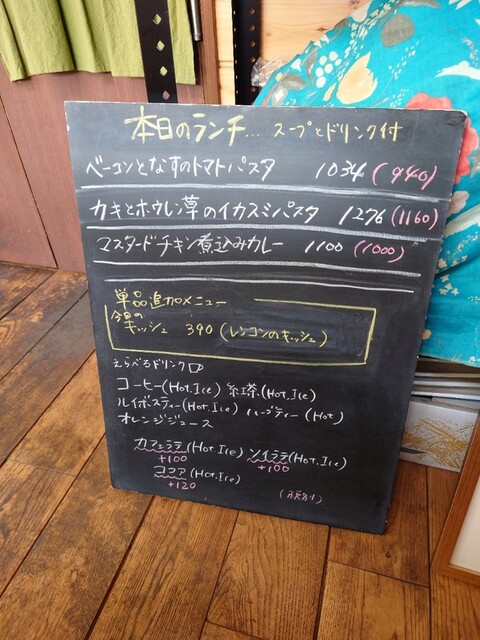 本日のランチ… スープとドリンク付
ベーコンとなすのトマトパスタ 1034(940)
カキとホウレン草のイカスミパスタ 1276(1160)
マスタードチキン煮込みカレー 1100(1000)
単品追加メニュー
今日の
キッシュ 390(レンコンのキッシュ)
えらべるドリンク
コーヒー(Hot.Ice) 紅茶(Hot.Ice)
ルイボスティー(Hot.Ice) ハーブティー(Hot)
オレンジジュース
カフェラテ(Hot.Ice) ソイラテ(Hot.Ice)
+100 +100
ココア(Hot.Ice)
+120 (税別)